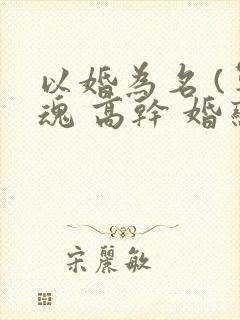 以婚為名(
魂 高幹 婚
宋麗敏